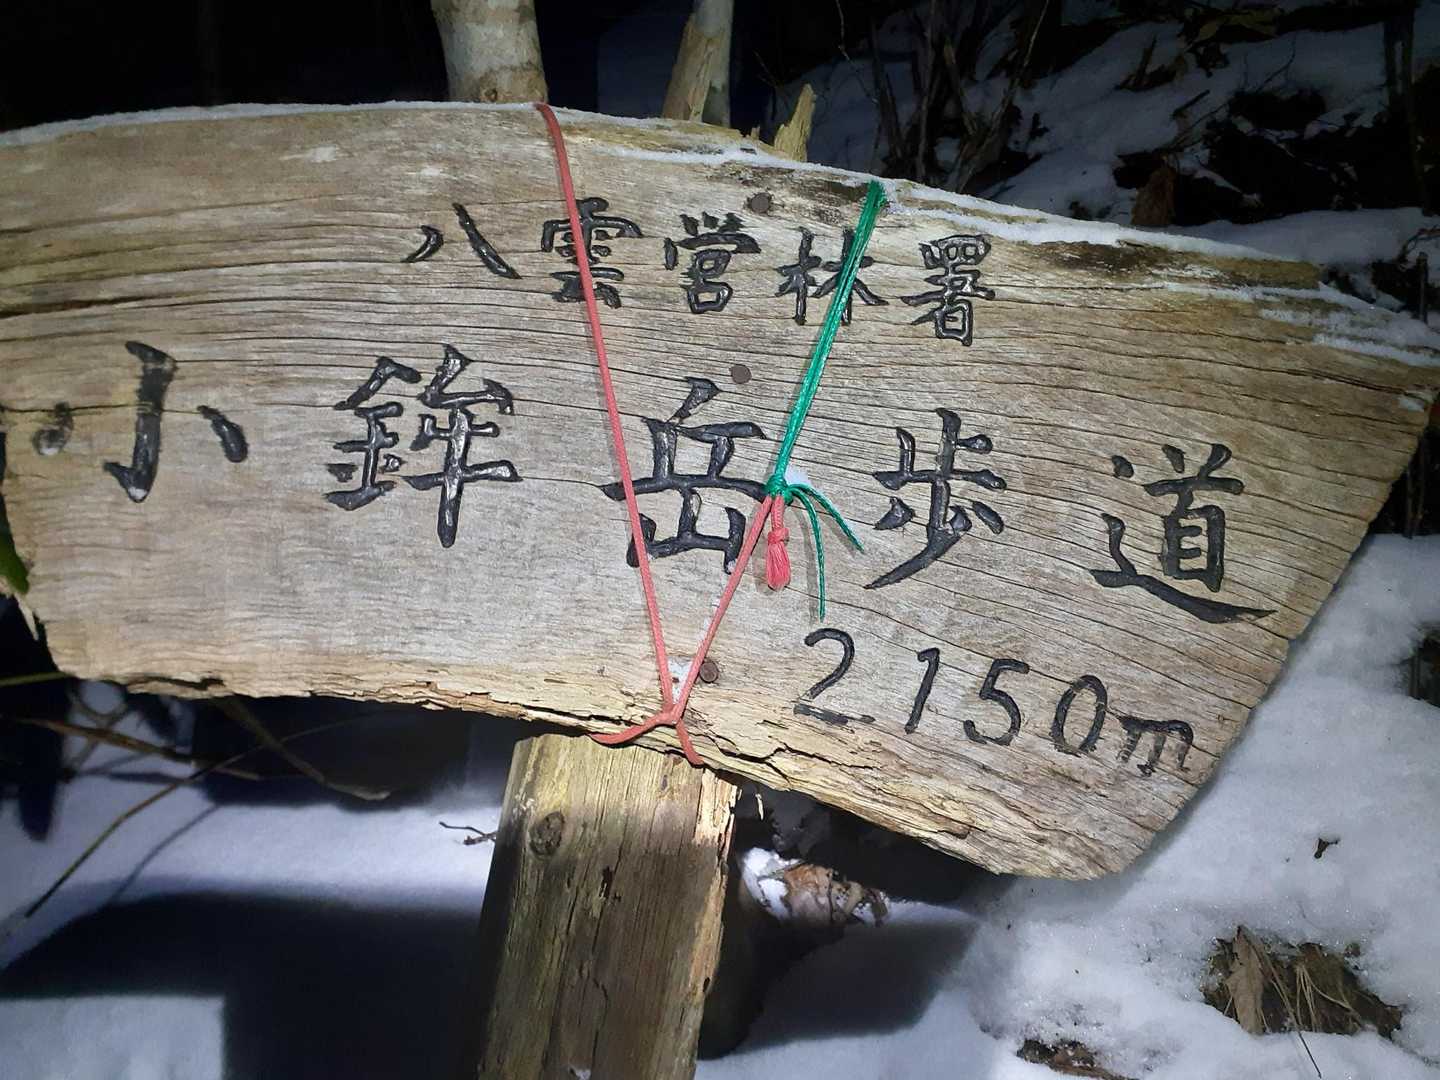 八雲営林署
小鉾岳歩道
2150m